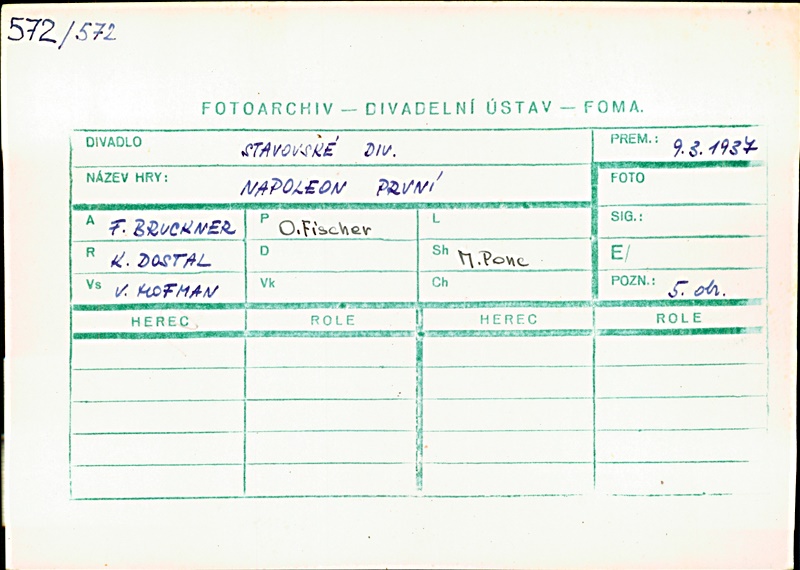 572/572
FOTOARCHIV — DIVADELNÍ ÚSTAV — FOMA.
DIVADLO STAVOVSKÉ DIV. PREM.: 9.3.1937
NÁZEV HRY: NAPOLEON PRVNÍ FOTO
A F. BRUCKNER P O.Fischer L SIG.:
R K. DOSTAL D Sh M.Ponc E/
Vs V. HOFMAN Vk Ch POZN.: 5. obr.
HEREC ROLE HEREC ROLE